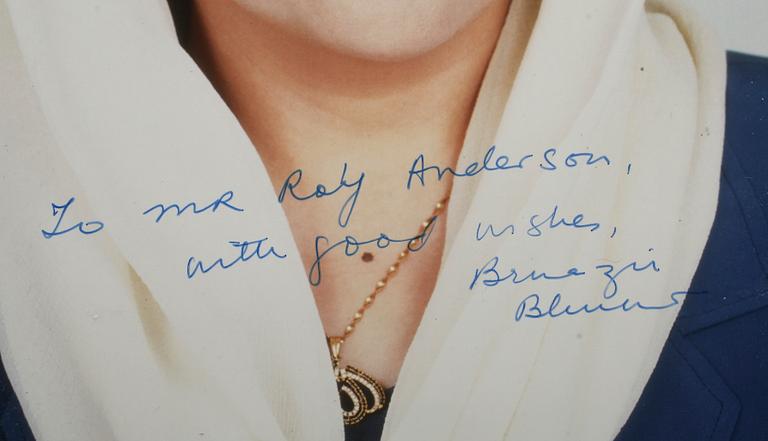 To MR Roy Anderson,
with good wishes,
Benazir
Bhutto